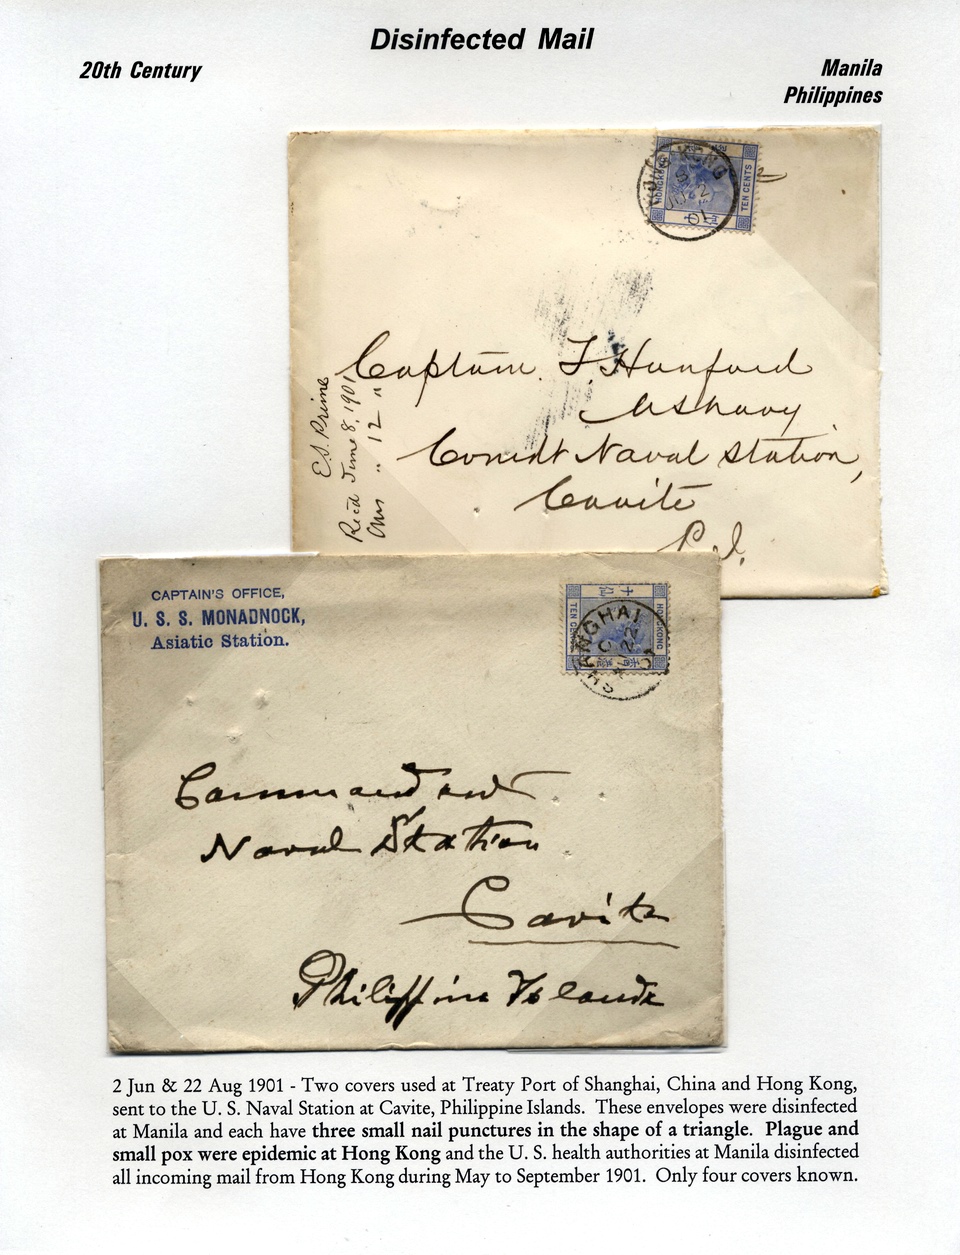 Disinfected Mail
20th Century
Manila
Philippines
HONG KONG
JU 2
1
HONGKONG
TEN CENTS
Captain. F. Hanford
U S Navy
Comdt Naval Station,
Cavite
P. I.
E.S. Prime
Rec'd June 8, 1901
Ans " 12 "
CAPTAIN'S OFFICE,
U. S. S. MONADNOCK,
Asiatic Station.
TEN CENTS
HONGKONG
SHANGHAI
22
01
Commandant
Naval Station
Cavite
Philippine Islands
2 Jun & 22 Aug 1901 - Two covers used at Treaty Port of Shanghai, China and Hong Kong,
sent to the U. S. Naval Station at Cavite, Philippine Islands. These envelopes were disinfected
at Manila and each have three small nail punctures in the shape of a triangle. Plague and
small pox were epidemic at Hong Kong and the U. S. health authorities at Manila disinfected
all incoming mail from Hong Kong during May to September 1901. Only four covers known.